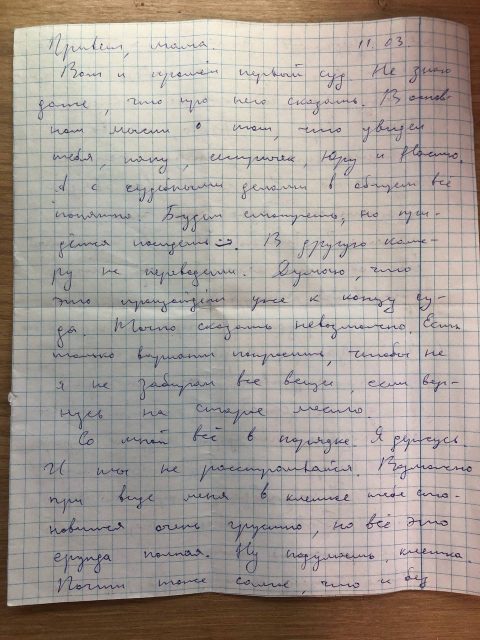 Привет, мама. 11.03.
Вот и прошёл первый суд. Не знаю
даже, что про него сказать. В основ-
ном мысли о том, что увидел
тебя, папу, сестричек, Юру и Настю.
А с судебными делами в общем всё
понятно. Будем смотреть, но при-
дётся посидеть :). В другую каме-
ру не перевели. Думаю, что
это произойдёт уже к концу су-
да. Точно сказать невозможно. Есть
только вариант попросить, чтобы не
я не забирал все вещи, если вер-
нусь на старое место.
Со мной всё в порядке. Я держусь.
И ты не расстраивайся. Возможно
при виде меня в клетке тебе ста-
новится очень грустно, но всё это
ерунда полная. Ну подумаешь, клетка.
Почти тоже самое, что и без